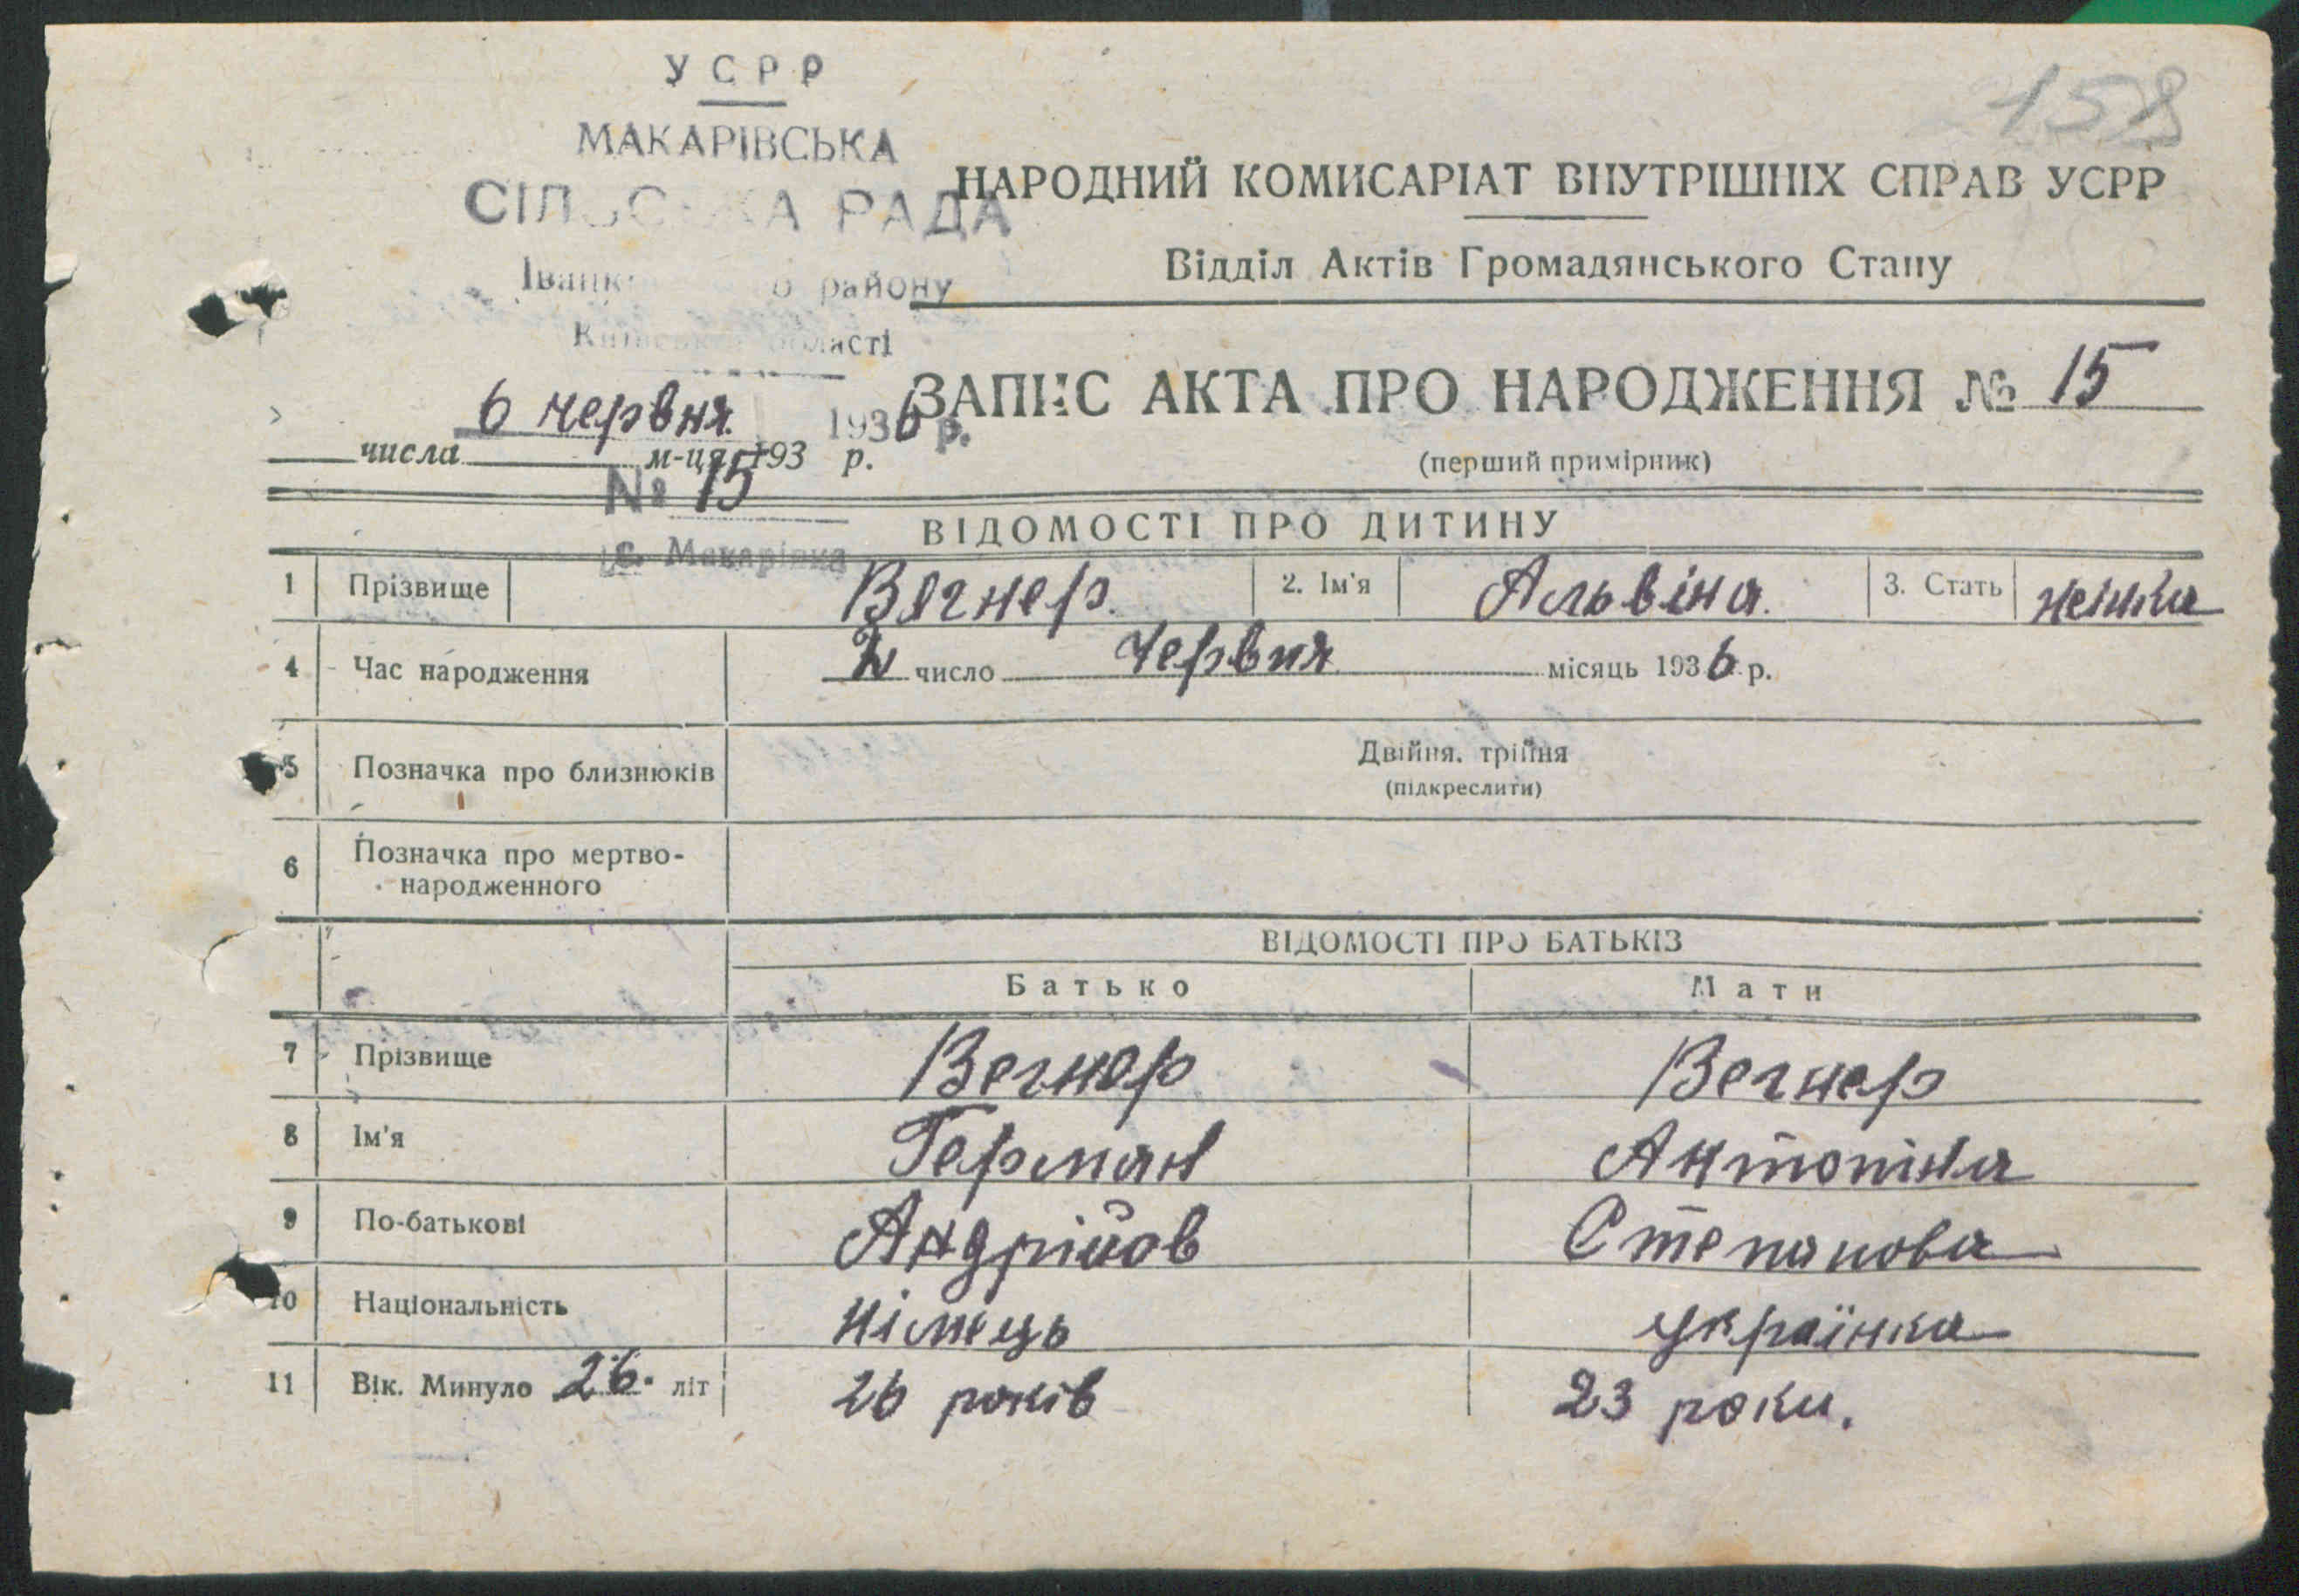 УСРР
158
МАКАРІВСЬКА
СІЛЬСЬКА РАДА
НАРОДНИЙ КОМИСАРІАТ ВНУТРІШНІХ СПРАВ УСРР
Відділ Актів Громадянського Стану
району
Київської області
6 червня 1936 р.
ЗАПИС АКТА ПРО НАРОДЖЕННЯ № 15
числа м-ця 193 р.
(перший примірник)
№ 15
ВІДОМОСТІ ПРО ДИТИНУ
с. Макарівка
1 Прізвище Вегнер. 2. Ім'я Альвіна. 3. Стать жінка
4 Час народження число Червня місяць 1936 р.
5 Позначка про близнюків Двійня, трійня
(підкреслити)
6 Позначка про мертво-
народженного
ВІДОМОСТІ ПРО БАТЬКІВ
Батько Мати
7 Прізвище Вегнер Вегнер
8 Ім'я Герман Антоніна
9 По-батькові Андрійов Степанова
10 Національність німець українка
11 Вік. Минуло 26. літ 26 років 23 роки.